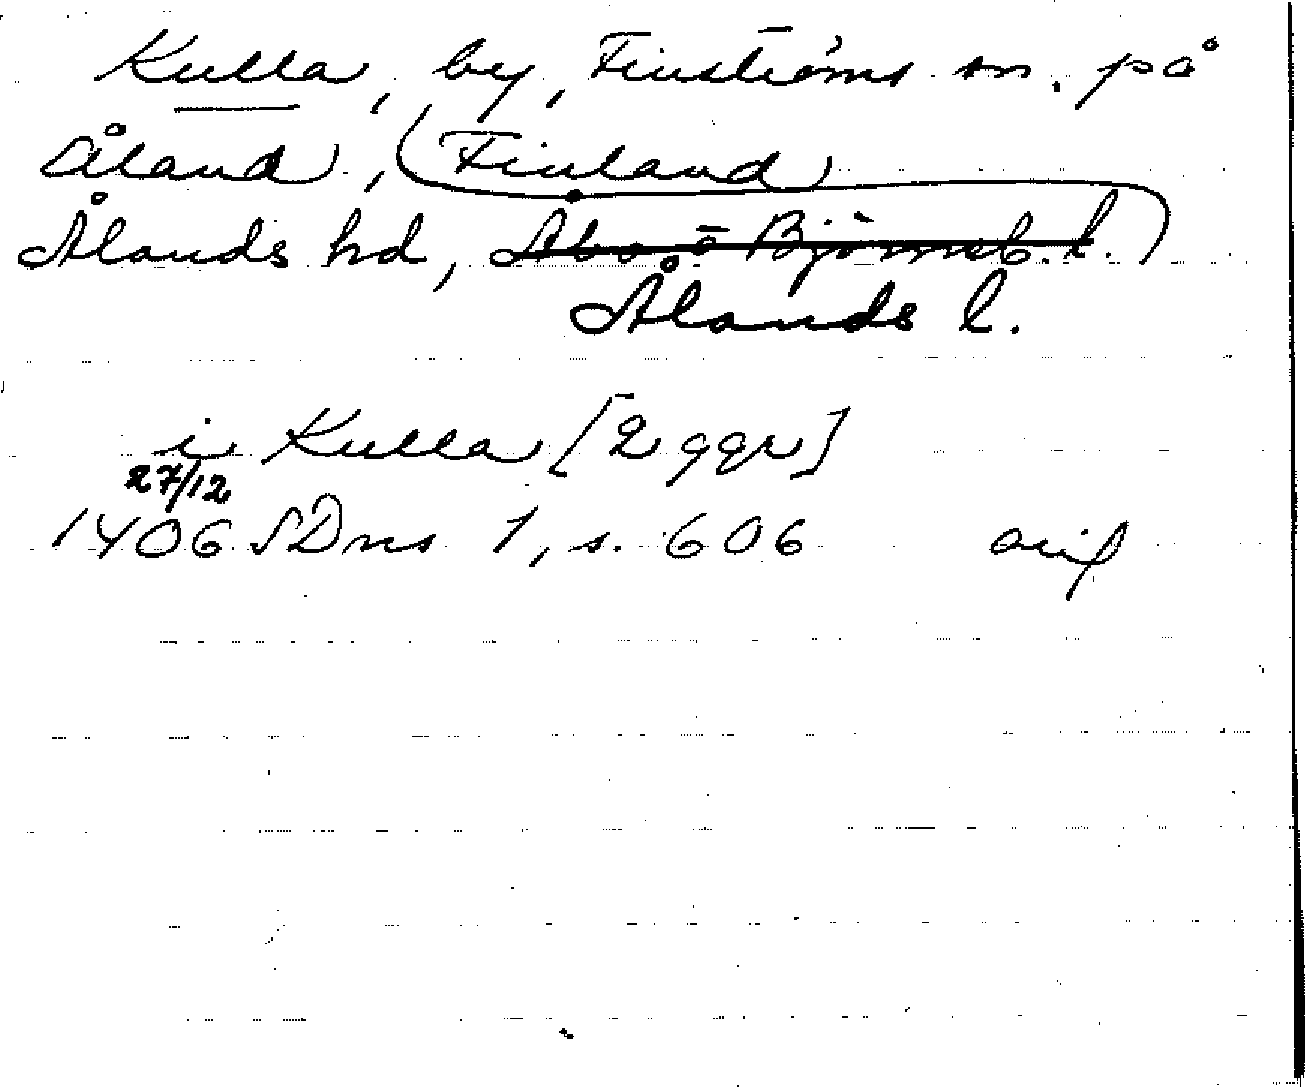 Kulla, by, Finströms sn. på
Åland, (Finland
Ålands hd, Åbo o Björneb. l.)
Ålands l.
i Kulla [2 ggr]
27/12
1406 SDns 1, s. 606 avsl